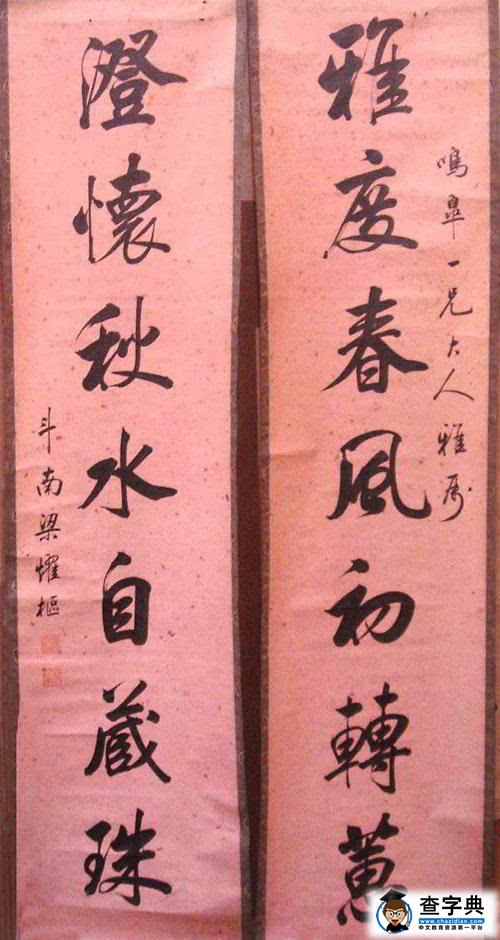 雅度春風初轉蕙
鳴皋一兄大人雅屬
澄懷秋水自藏珠
斗南梁耀樞
查字典
www.chazidian.com
中文教育资源第一平台